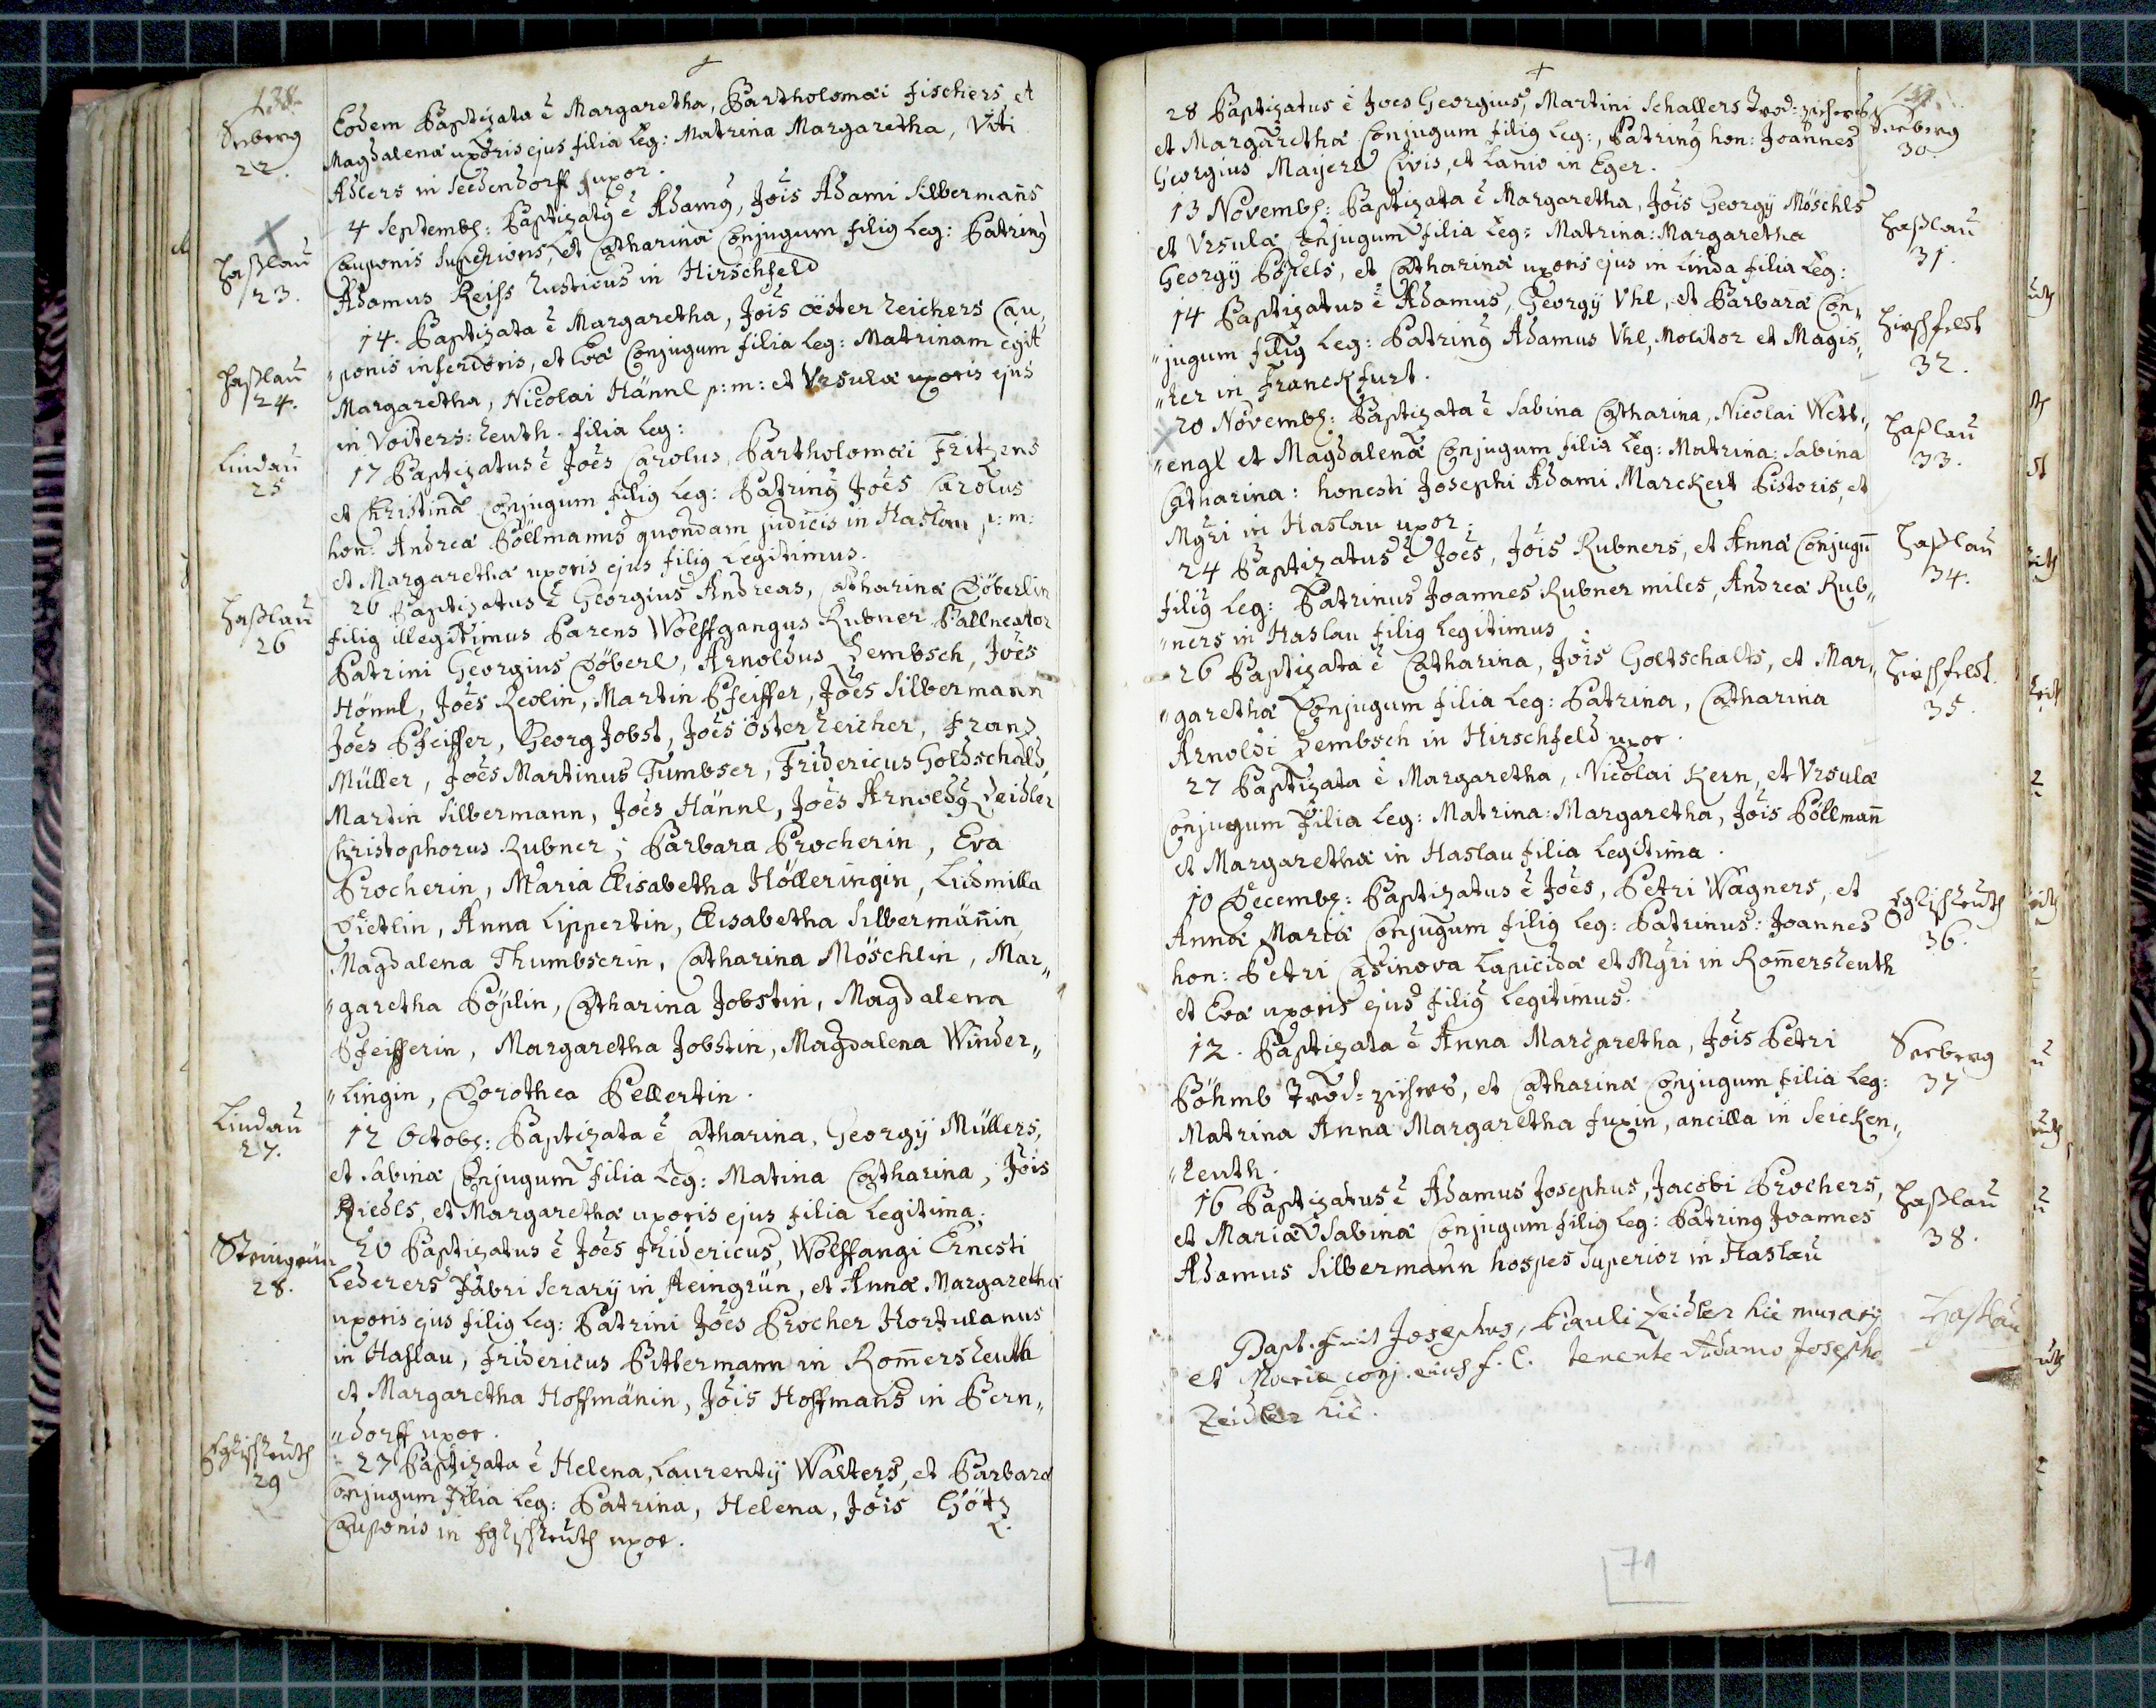 138.
Seeberg
22.
Eodem Baptizata ē Margaretha, Bartholomæi Fischers, et
Magdalenæ uxoris ejus filia Leg: Matrina Margaretha, Viti
Adlers in Seehendorff uxor.
Haßlau
23.
4 Septembʒ: Baptizatꝰ ē Adamꝰ, Jois Adami Silbermans
Cauponis Superioris, et Catharinæ Conjugum filiꝰ Leg: Patrinꝰ
Adamus Reiss Rusticus in Hirschfeld
Haßlau
24.
14. Baptizata ē Margaretha, Jois Österreichers Cau„
„ponis inferioris, et Evæ Conjugum filia Leg: Matrinam egit
Margaretha, Nicolai Hännl p: m: et Ursulæ uxoris ejus
in Voitersreuth filia Leg:
Lindau
25
17 Baptizatus ē Joes Carolus, Bartholomæi Fritzens
et Christinæ Conjugum filiꝰ Leg: Patrinꝰ Joes Carolus
hon: Andreæ Pöllmanns quondam judicis in Haslau p: m:
et Margarethæ uxoris ejus filiꝰ Legitimus.
Haßlau
26
20 Baptizatus ē Georgius Andreas, Catharinæ Döberlin
filiꝰ illegitimus Parens Wolffgangus Rubner Ballneator
Patrini Georgius Döberl, Arnoldus Lembsch, Joes
Hönnl, Joes Reolin, Martin Pfeiffer, Joes Silbermann
Joes Pfeiffer, Georg Jobst, Joes Österreicher, Franz
Müller, Joes Martinus Tumbser, Fridericus Goldschald,
Martin Silbermann, Joes Hännl, Joes Arnoldꝰ Zeidler
Christophorus Rubner; Barbara Procherin, Eva
Procherin, Maria Elisabetha Hölleringin, Ludmilla
Dietlin, Anna Lippertin, Elisabetha Silbermänin,
Magdalena Thumbserin, Catharina Möschlin, Mar„
„garetha Pöplin, Catharina Jobstin, Magdalena
Pfeifferin, Margaretha Jobstin, Magdalena Winder„
„lingin, Dorothea Pellertin.
Lindau
27.
12 Octobʒ: Baptizata ē Catharina, Georgij Müllers,
et Sabinæ Conjugum filia Leg: Matina Catharina, Jois
Riedls, et Margarethæ uxoris ejus filia Legitima.
Steingrün
28.
20 Baptizatus ē Joes Fridericus, Wolffangi Ernesti
Lederers Fabri Serarij in Steingrün, et Annæ Margarethæ
uxoris ejus filiꝰ Leg: Patrini Joes Procher Hortulanus
in Haslau, Fridericus Bittermann in Romersreuth
et Margaretha Hoffmänin, Jois Hoffmans in Pern„
„dorff uxor.
Eglißreuth
29
27 Baptizata ē Helena, Laurentij Walters, et Barbaræ
Conjugum filia Leg: Patrina, Helena, Jois Götz
Cauponis in Eglißreuth uxor.
139.
28 Baptizatus ē Joes Georgius, Martini Schallers
et Margarethæ Conjugum filiꝰ Leg:, Patrinꝰ hon: Joannes
Georgius Maijerl Civis, et Lanio in Eger.
Seeberg
30.
13 Novembʒ: Baptizata ē Margaretha, Jois Georgij Möschls
et Ursulæ Conjugum filia Leg: Matrina: Margaretha
Georgij Pöpels, et Catharinæ uxoris ejus in Linda filia Leg:
Haßlau
31.
14 Baptizatus ē Adamus, Georgij Uhl, et Barbaræ Con„
„jugum filiꝰ Leg: Patrinꝰ Adamus Uhl, Molitor et Magis„
„ter in Franckfurt.
Hirschfeldt
32.
20 Novembʒ: Baptizata ē Sabina Catharina, Nicolai Wett„
„engl et Magdalenæ Conjugum filia Leg: Matrina: Sabina
Catharina: honesti Josephi Adami Marckert Pistoris, et
Mgri in Haslau uxor.
Haßlau
33.
24 Baptizatus ē Joes, Jois Rubners, et Annæ Conjugū
filiꝰ Leg: Patrinus Joannes Rubner miles, Andreæ Rub„
„ners in Haslau filiꝰ Legitimus
Haßlau
34.
26 Baptizata ē Catharina, Jois Goltschalts, et Mar„
„garethæ Conjugum filia Leg: Patrina, Catharina
Arnoldi Lembsch in Hirschfeld uxor.
Hirschfeldt
35.
27 Baptizata ē Margaretha, Nicolai Kern, et Ursulæ
Conjugum filia Leg: Matrina: Margaretha, Jois Pöllman
et Margarethæ in Haslau filia Legitima.
10 Decembʒ: Baptizatus ē Joes, Petri Wagners, et
Annæ Mariæ Conjugum filiꝰ Leg: Patrinus: Joannes
hon: Petri Casinova Lapicidæ et Mgri in Romersreuth
et Evæ uxoris ejus filiꝰ Legitimus.
Eglißreuth
36.
12. Baptizata ē Anna Margaretha, Jois Petri
Böhmb , et Catharinæ Conjugum filia Leg:
Matrina Anna Margaretha Fuxin, ancilla in Seicken„
„reuth.
Seeberg
37
16 Baptizatus ē Adamus Josephus, Jacobi Prochers,
et Mariæ Sabinæ Conjugum filiꝰ Leg: Patrinꝰ Joannes
Adamus Silbermann hospes Superior in Haslau
Haßlau
38.
Bapt. fuit Josephus, Pauli Zeidler hic murarij
et Mariæ conj. eius f. l. tenente Adamo Josepho
Zeidler hic.
Haßlau
71